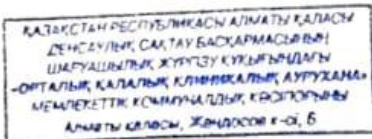 ҚАЗАҚСТАН РЕСПУБЛИКАСЫ АЛМАТЫ ҚАЛАСЫ
ДЕНСАУЛЫҚ САҚТАУ БАСҚАРМАСЫНЫҢ
ШАРУАШЫЛЫҚ ЖҮРГІЗУ ҚҰҚЫҒЫНДАҒЫ
«ОРТАЛЫҚ ҚАЛАЛЫҚ КЛИНИКАЛЫҚ АУРУХАНА»
МЕМЛЕКЕТТІК КОММУНАЛДЫҚ КӘСІПОРЫНЫ
Алматы қаласы, Жандосов к-сі, 6